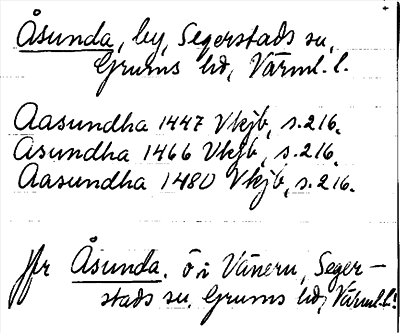 Åsunda, by, Segerstads sn,
Grums hd, Värml. l.
Aasundha 1447 Vkjb, s. 216.
Asundha 1466 Vkjb, s. 216.
Aasundha 1480 Vkjb, s. 216.
Jfr Åsunda. ö i Vänern, Seger-
stads sn. Grums hd, Värml. l.